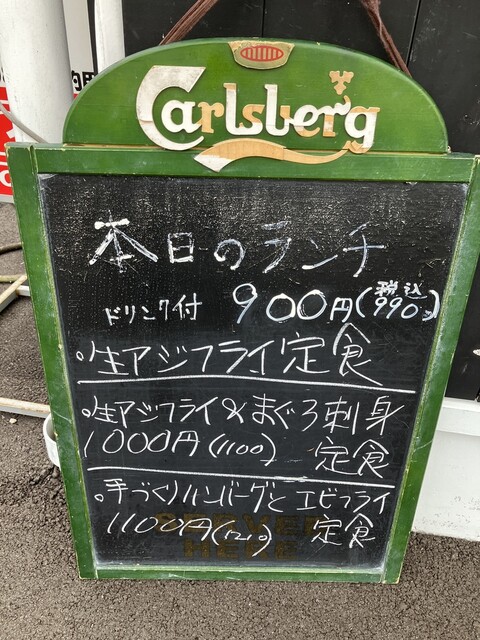 Carlsberg
本日のランチ
ドリンク付 900円(税込990)
・生アジフライ定食
・生アジフライ&まぐろ刺身
1000円(1100) 定食
・手づくりハンバーグとエビフライ
1100円(1210) 定食
SERVED
HERE